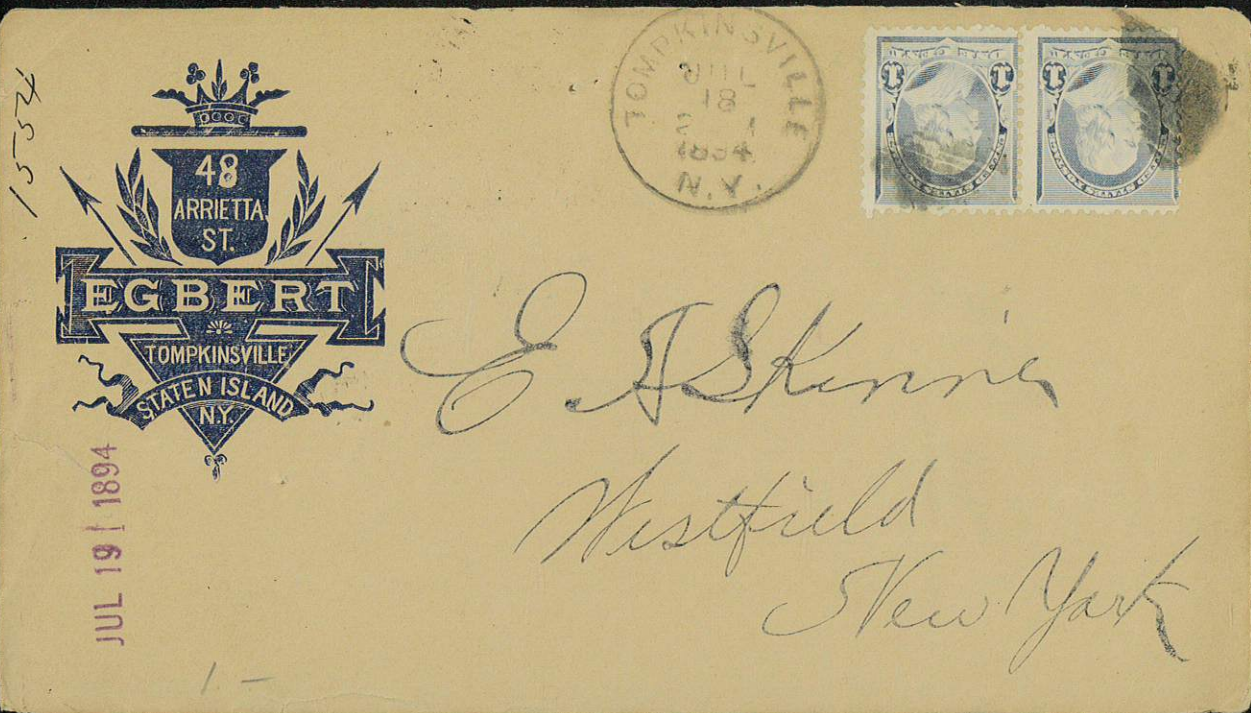 1554
48
ARRIETTA
ST.
EGBERT
TOMPKINSVILLE
STATEN ISLAND
N.Y.
JUL 19 1894
TOMPKINSVILLE
JUL
18
1894
N.Y.
1 1
1 1
E A Skinner
Westfield
New York
1 –